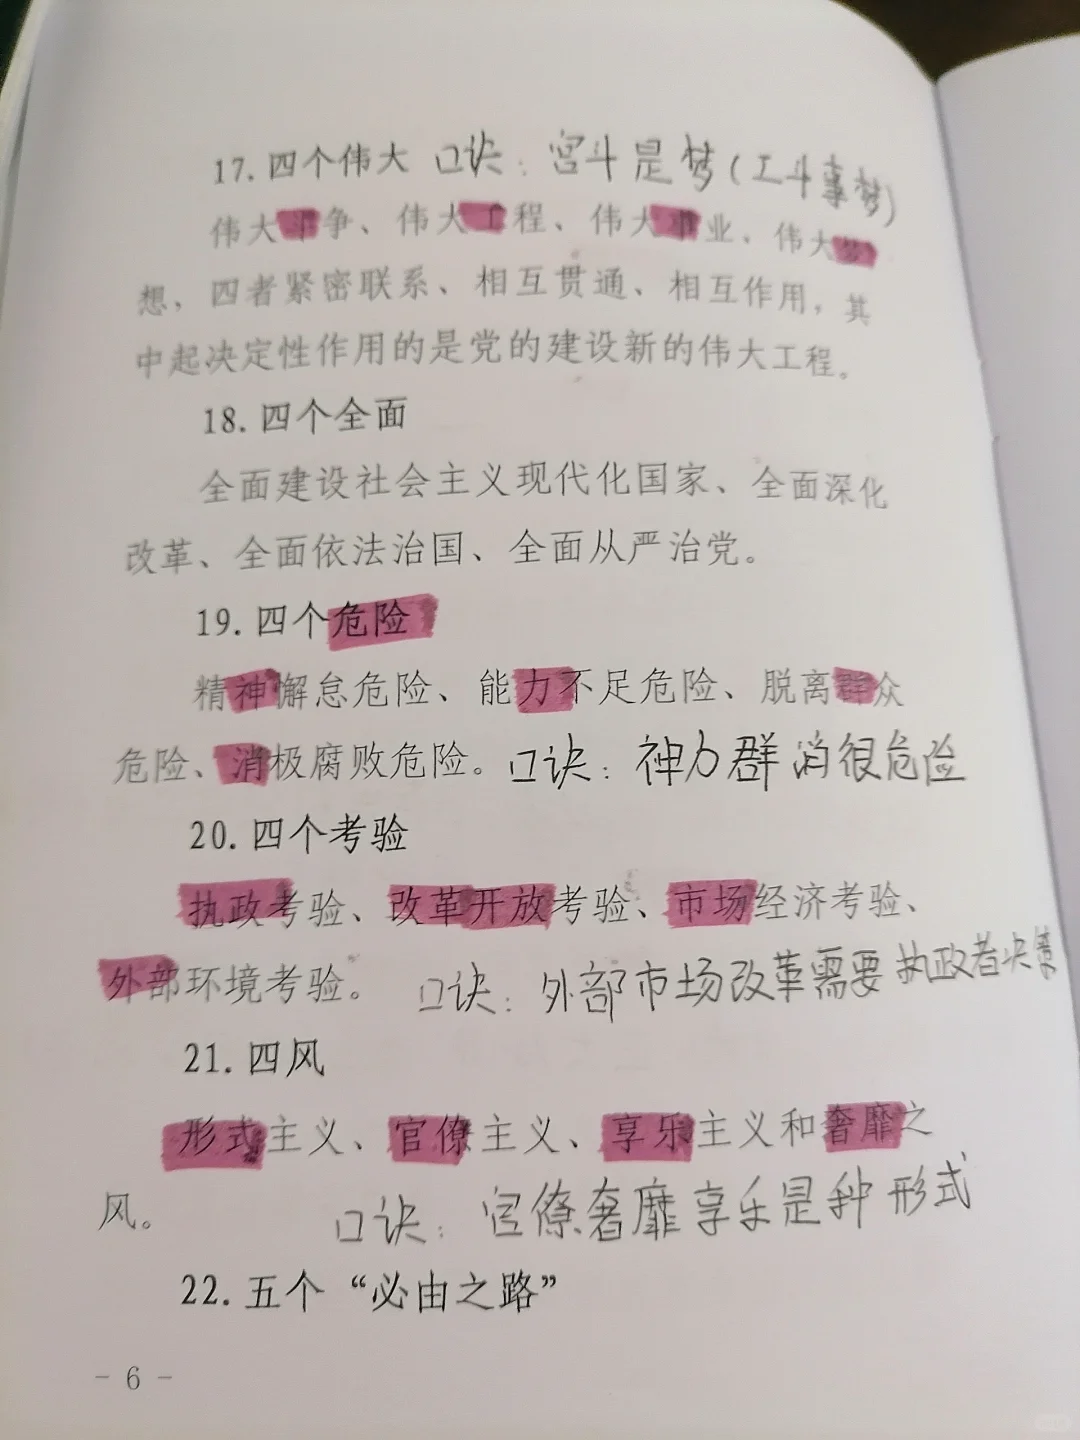 17.四个伟大 口诀：宫斗是梦(工斗事梦)
伟大斗争、伟大工程、伟大事业、伟大梦
想，四者紧密联系、相互贯通、相互作用，其
中起决定性作用的是党的建设新的伟大工程。
18.四个全面
全面建设社会主义现代化国家、全面深化
改革、全面依法治国、全面从严治党。
19.四个危险
精神懈怠危险、能力不足危险、脱离群众
危险、消极腐败危险。口诀：神力群消很危险
20.四个考验
执政考验、改革开放考验、市场经济考验、
外部环境考验。 口诀：外部市场改革需要执政者决策
21.四风
形式主义、官僚主义、享乐主义和奢靡之
风。 口诀：官僚奢靡享乐是种形式
22.五个“必由之路”
- 6 -